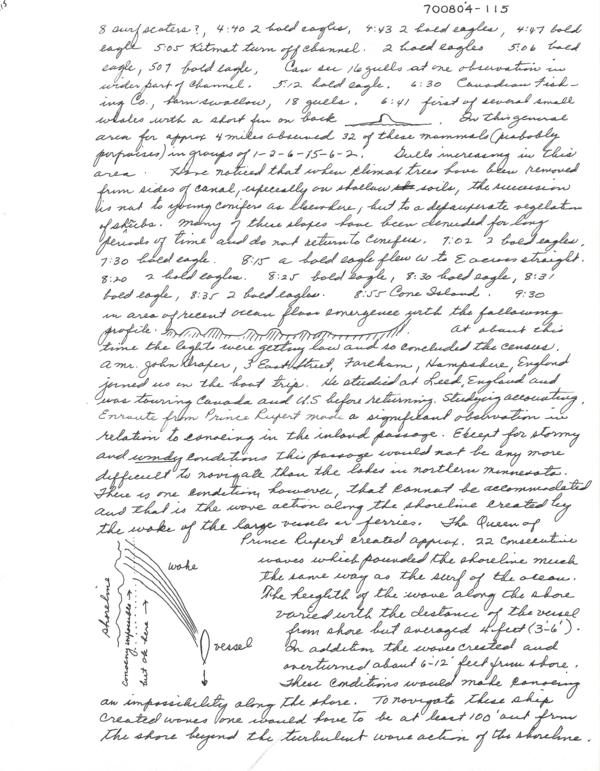 700804-115
8 surf scoters?, 4:40 2 bald eagles, 4:43 2 bald eagles, 4:47 bald
eagle 5:05 Kitmat turn off channel. 2 bald eagles 5:06 bald
eagle, 507 bald eagle, Can see 16 gulls at one observation in
wider part of channel. 5:12 bald eagle. 6:30 Canadian Fish-
ing Co., barn swallow, 18 gulls. 6:41 first of several small
whales with a short fin on back. In this general
area for approx 4 miles observed 32 of these mammals (probably
porpoises) in groups of 1-2-6-15-6-2. Gulls increasing in this
area. Have noticed that when climax trees have been removed
from sides of canal, especially on shallow soils, the succession
is not to young conifers as elsewhere, but to a depauperate vegetation
of shrubs. Many of these slopes have been denuded for long
periods of time and do not return to conifers. 7:02 2 bald eagles.
7:30 bald eagle. 8:15 a bald eagle flew W to E across straight.
8:20 2 bald eagles. 8:25 bald eagle, 8:30 bald eagle, 8:31
bald eagle, 8:35 2 bald eagles. 8:55 Cone Island. 9:30
in area of recent ocean floor emergence with the following
profile. At about this
time the lights were getting low and so concluded the census.
A mr. John Draper, 3 East Street, Fareham, Hampshire, England
joined us on the boat trip. He studied at Leed, England and
was touring Canada and U.S before returning. Studying accounting.
Enroute from Prince Rupert made a significant observation in
relation to canoeing in the inland passage. Except for stormy
and windy conditions this passage would not be any more
difficult to navigate than the lakes in northern Minnesota.
There is one condition, however, that cannot be accommodated
and that is the wave action along the shoreline created by
the wake of the large vessels or ferries. The Queen of
Prince Rupert created approx. 22 consecutive
waves which pounded the shoreline much
the same way as the surf of the ocean.
The heighth of the wave along the shore
varied with the distance of the vessel
from shore but averaged 4 feet (3'-6').
In addition the waves crested and
overturned about 6-12' feet from shore.
These conditions would make canoeing
an impossibility along the shore. To navigate these ship
created waves one would have to be at least 100' out from
the shore beyond the turbulent wave action of the shoreline.
shoreline
canoeing impossible →
but ok here →
wake
vessel